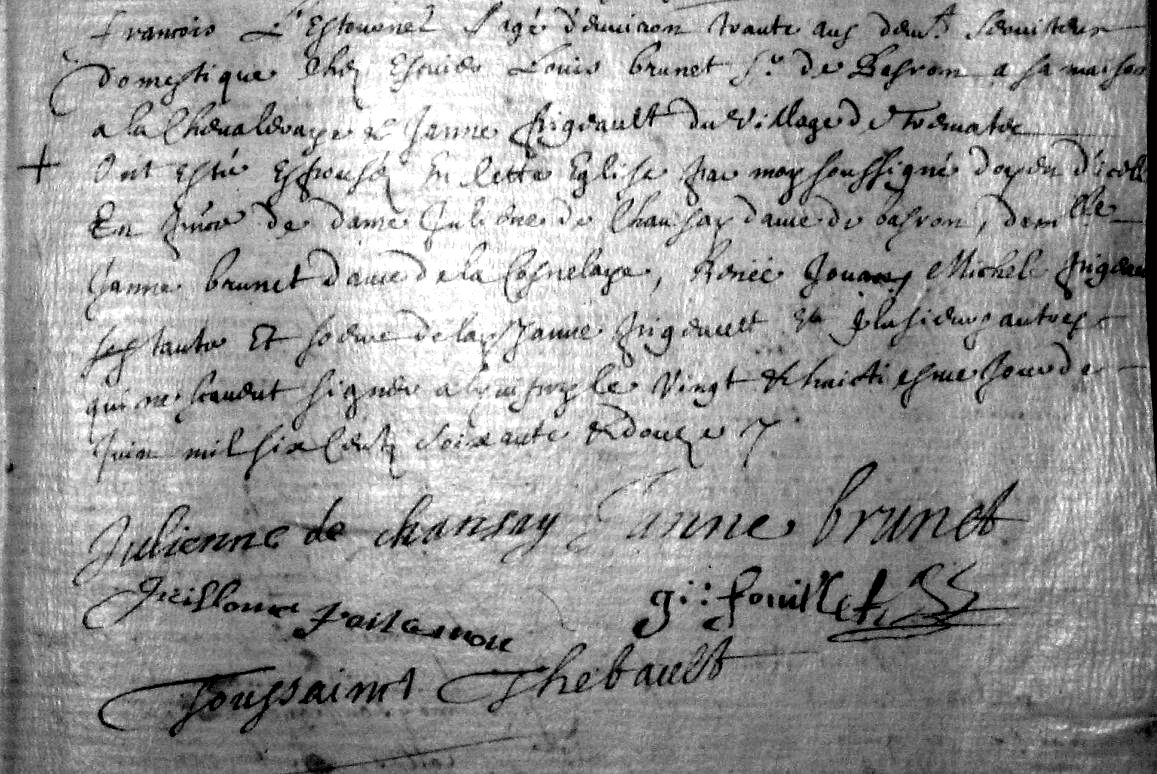 François L'Estouenel l'agé d'enuiron trante ans dem.t seruiteur
domestique chez escuier Louis brunet s.r de Basron a sa maison
a la Cheualeraye & Janne Frigeault du village de
+ Ont esté espousé en cette Eglise par moy soussigné doyen
En de dame Julienne de Chansay dame de basron, dem.lle
Janne brunet dame de la , Renée Michel
tante Et de lad Janne Frigeault & plusieurs autres
qui ne scauent signer le vingt & huictiesme Jour de
Juin mil six centz soixante & douze
Julienne de chansay Janne brunet
Guillome g:: fouillet
Toussaint Thebault